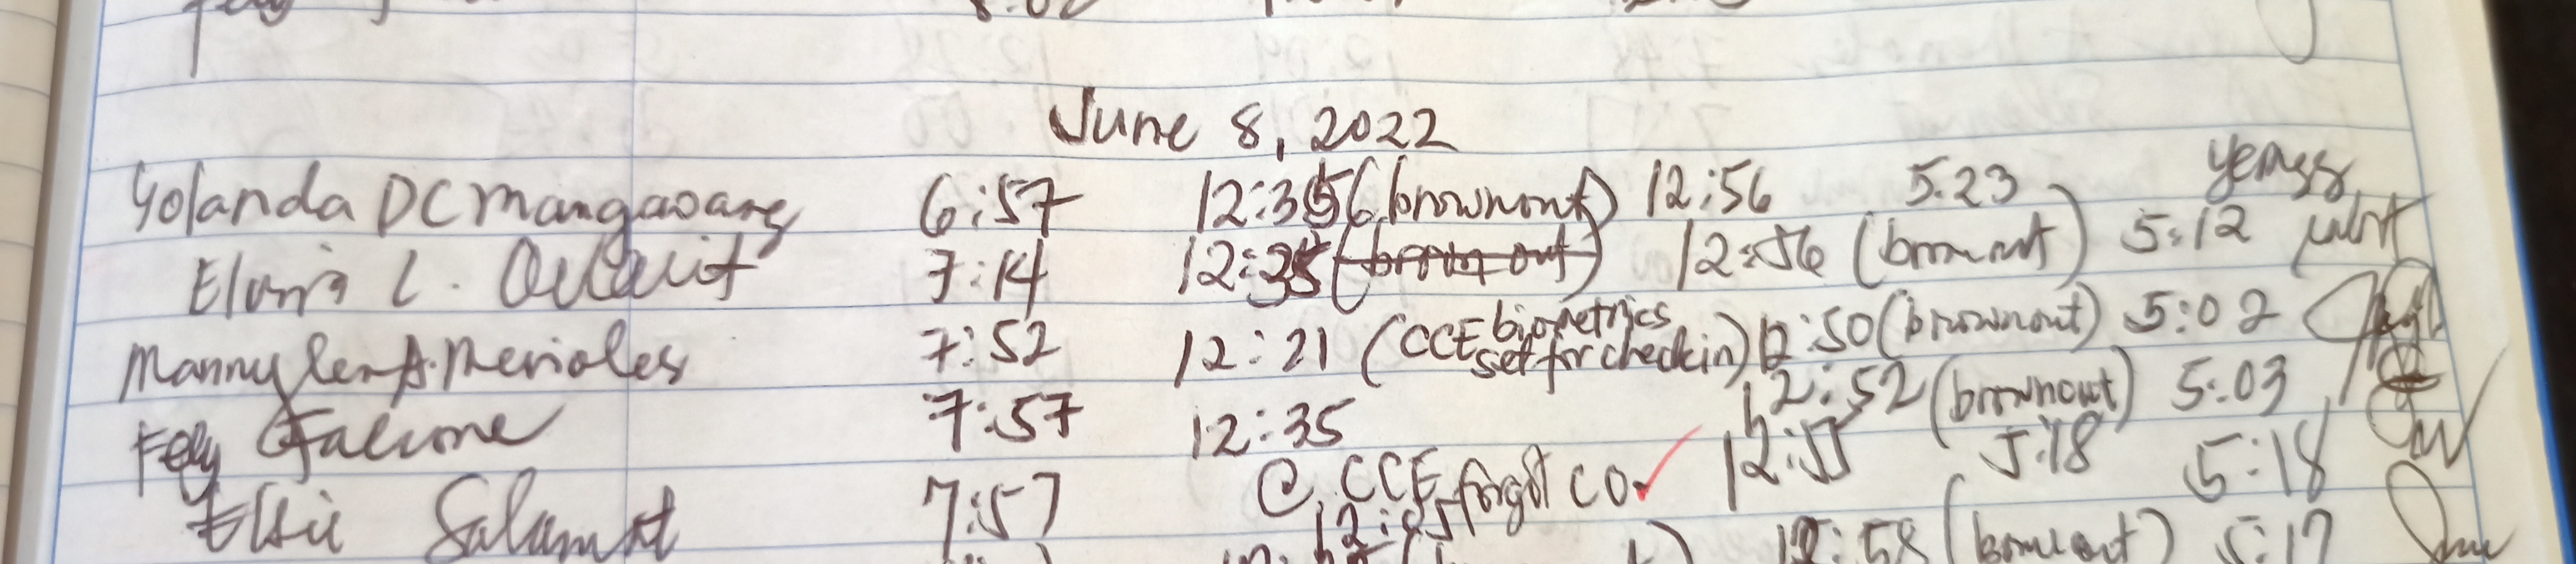 June 8, 2022
Yolanda DC Mangaoang 6:57 12:35 (brownout) 12:56 5:23
L. 7:14 12:35 (brown out) 12:56 (brownout) 5:12
Mannylen A. Merioles 7:52 12:21 (CCE biometrics set for checkin) 12:50 (brownout) 5:02
Fely Facione 7:57 12:35 12:52 (brownout) 5:03
Elsie Salamat 7:57 @ CCE forgot CO 12:55 5:18 5:18
12:58 (brownout) 5:17